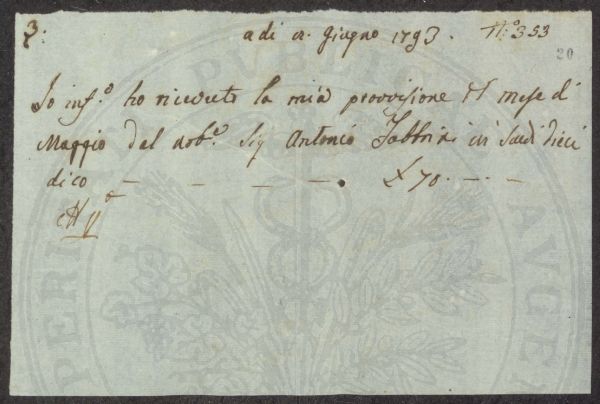 3: a di a. Giugno 1793. N:o 353
20
Io inf.o ho riceuuto la mia provvisione pl mese di
Maggio dal nob.e Sig Antonio Fabbrini in Scudi dieci
dico — — — — £ 70. — —
PUBLIC
AUGE
PERI